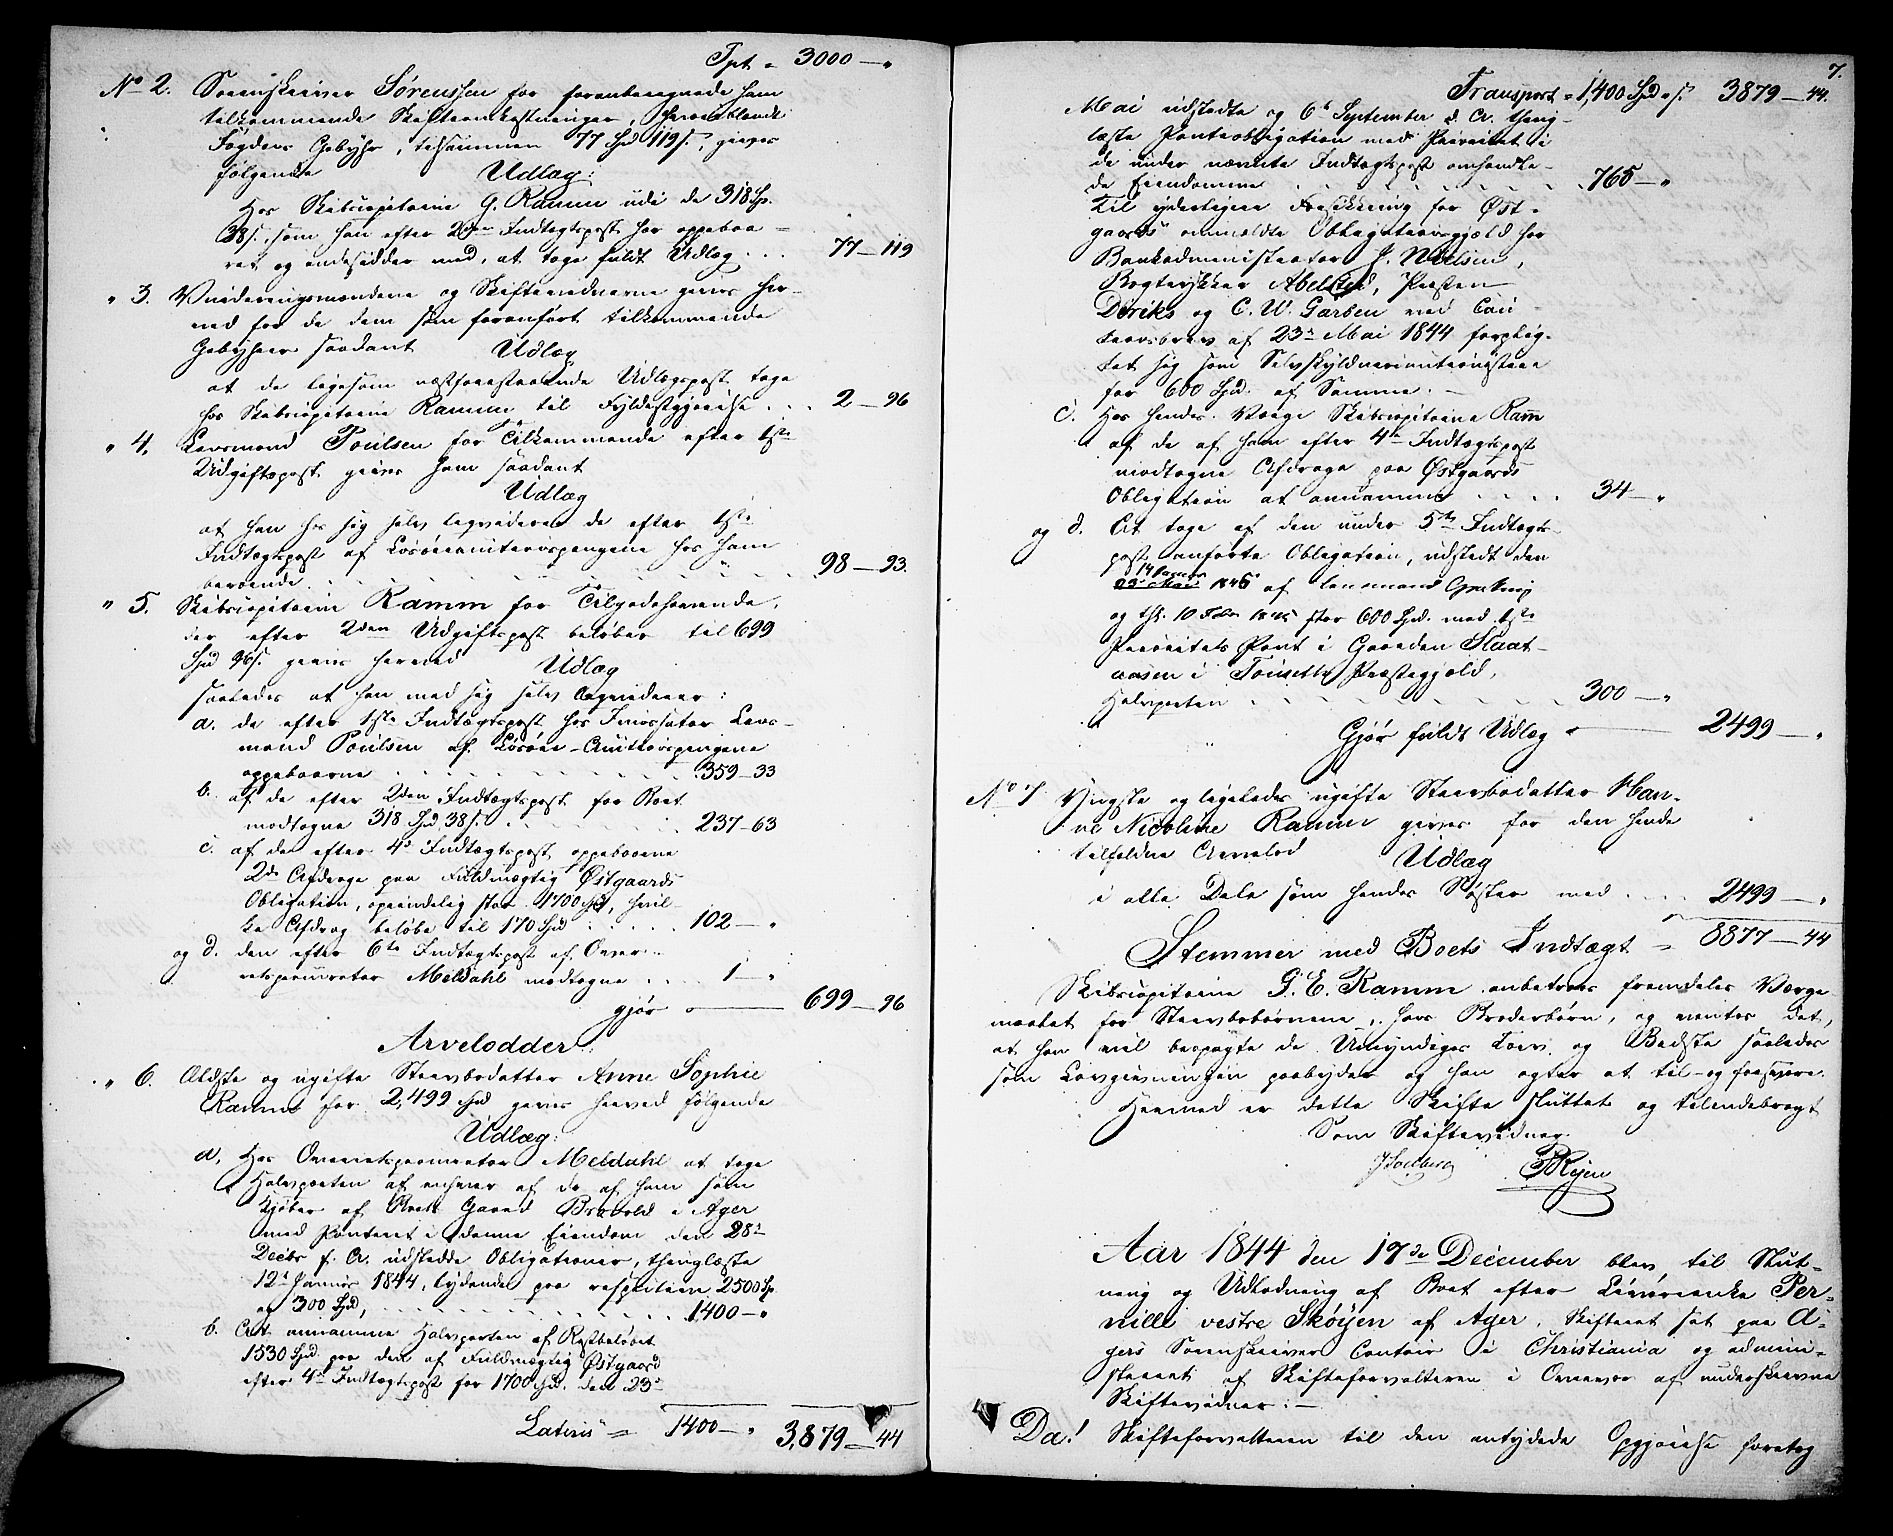 Tpt = 3000 — "
No 2. Sorenskriver Sørenssen for foranberegnede ham
tilkommende Skifteomkostninger, herunder
Fogdens Gebyhr, tilsammen 77 Spd 119 s., gives
følgende Udlæg:
Hos Skibscapitaine G. Ramm udi de 318 Sp.
38 s. som han efter 2den Indtægtspost har oppebaa-
ret og indesidder med, at tage fuldt Udlæg . . . 77 — 119
" 3. Vurderingsmændene og Skiftevidnerne gives her-
ved for de dem som foranført tilkommende
Gebyhrer saadant Udlæg
at de ligesom næstforestaaende Udlægspost tage
hos Skibscapitaine Ramm til Fyldestgjørelse . . . 2 — 96
" 4. Lensmand Poulsen for Tilkommende efter 1ste
Udgiftspost gives ham saadant
Udlæg
at han hos sig selv liqviderer de efter 1ste
Indtægtspost af Løsøreauctionspengene hos ham
beroende . . . 98 — 93.
" 5. Skibscapitaine Ramm for Tilgodehavende,
der efter 2den Udgiftspost beløber til 699
Spd 96 s. gives herved Udlæg
saaledes at han med sig selv liqviderer:
a. de efter 1ste Indtægtspost hos Incassator Lens-
mand Poulsen af Løsøre-Auctionspengene
oppebaarne . . . 359 — 33
b. af de efter 2den Indtægtspost for Boet
modtagne 318 Spd 38 s. . . . 237 — 63
c. af de efter 4de Indtægtspost oppebaarne
2de Afdrage paa Fuldmægtig Østgaards
Obligation, oprindelig stor 1700 Spd, hvil-
ke Afdrag beløbe til 170 Spd . . . 102 — "
og d. den efter 6te Indtægtspost af Over-
retsprocurator Meldahl modtagne . . . 1 — "
gjør — 699 — 96
Arvelodder:
" 6. Ældste og ugifte Stervbodatter Anne Sophie
Ramm for 2,499 Spd gives herved følgende
Udlæg:
a, Hos Overretsprocurator Meldahl at tage
Halvparten af enhver af de af ham som
Kjøber af Boets Gaard i Ager
med Panteret i denne Eiendom den 28de
Decbr f. A. udstedde Obligationer, thinglæste
12te Januar 1844, lydende paa respective 2500 Sp
og 300 Spd, . . . 1400 — "
b. At annamme Halvparten af Restbeløbet
1530 Spd. paa den af Fuldmægtig Østgaard
efter 4de Indtægtspost for 1700 Spd. den 23de
Lateris = 1400 — " 3,879 — 44
7.
Transport = 1,400 Spd " s. 3879 — 44.
Mai udstedte og 6te September d. A. thing-
læste Panteobligation med Prioritet i
de under nævnte Indtægtspost omhandle-
de Eiendomme . . . 765 — "
Til yderligere Forsikkring for Øst-
gaards anmeldte Obligationsgjæld har
Bankadministrator J. Nielsen,
Bogtrykker Abelsted, Præsten
Diriks og C. W. Garben ved Cau-
tionsbrev af 23de Mai 1844 forplig-
tet sig som Selvskyldnercautionister
for 600 Spd. af Summen. —
c. Hos hendes Værge Skibscapitaine Ram
af de af ham efter 4de Indtægtspost
modtagne Afdrage paa Østgaards
Obligation at annamme . . . 34 — "
og d. At tage af den under 5te Indtægts-
post anførte Obligation, udstedt den
14 Januar
23de Mai 1845 af Lensmand
og thl. 10 Febr 1845 stor 600 Spd. med 1ste
Prioritets Pant i Gaarden Slaat-
aasen i Præstegjeld,
Halvparten . . . 300 — "
Gjør fuldt Udlæg — 2499 — "
No 7 Yngste og ligeledes ugifte Stervbodatter Han-
ne Nicoline Ramm gives for den hende
tilfaldne Arvelod Udlæg
i alle Dele som hendes Søster med . . . 2499 — "
Stemmer med Boets Indtægt = 8877 — 44
Skibscapitaine G. E. Ramm anbetroes fremdeles Værge-
maalet for Stervbobørnene, hans Broderbørn, og ventes det,
at han vil besørge de Umyndiges Tarv og Bedste saaledes
som Lovgivningen paabyder og han agter at til- og forsvare.
Hermed er dette Skifte sluttet og tilendebragt
Som Skiftevidner.
J Solberg PRyen
Aar 1844 den 17de December blev til Slut-
ning og Udlodning af Boet efter Leverenke Per-
nille vestre Skøyen af Ager, Skifteret sat paa A-
gers Sorenskriver Contoir i Christiania og admini-
streret af Skifteforvalteren i Overvær af underskrevne
Skiftevidner: —
Da! Skifteforvalteren til den antydede Opgjørelse foretog